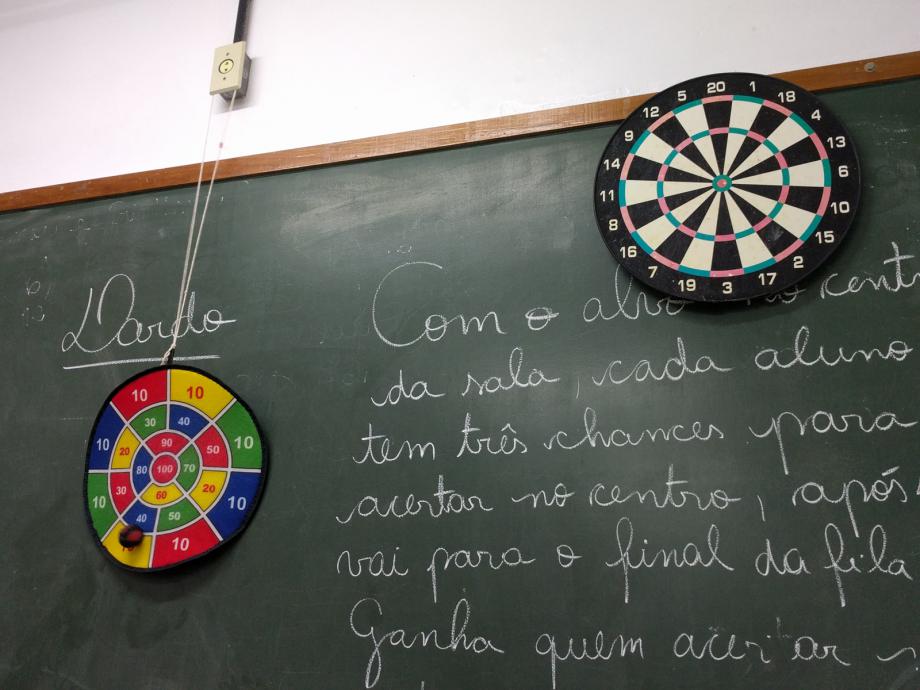 Dardo
Com o alvo no cent
da sala, cada aluno
tem três chances para
acertar no centro, após
vai para o final da fila
Ganha quem acertar
20 1 18 4 13 6 10 15 2 17 3 19 7 16 8 11 14 9 12 5
10 10 10 10 10 10 10
30 40 50 20 50 40 30 20
90 70 60 80
100